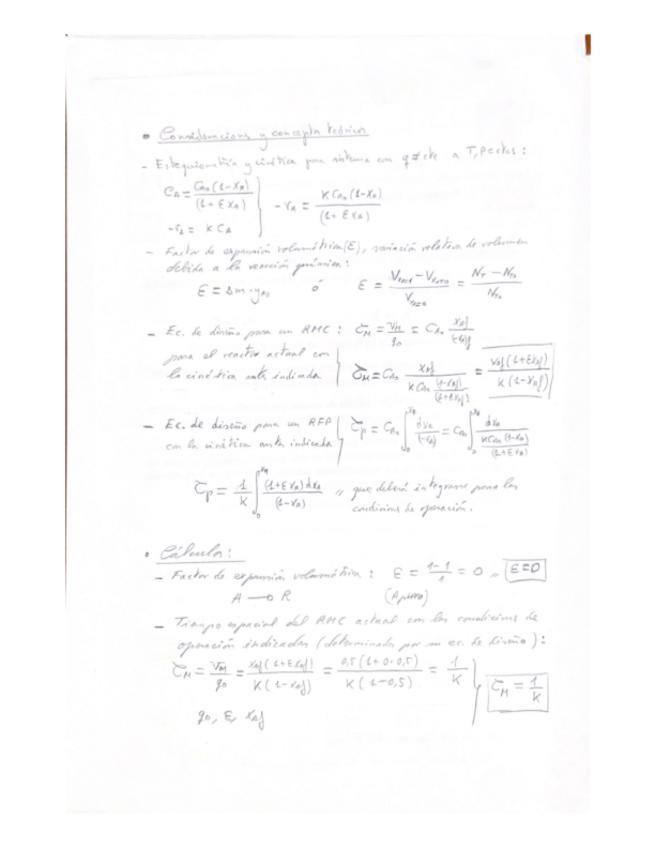 • Consideraciones y conceptos teóricos
- Estequiometría y cinética para sistema con q≠cte a T, P ctes:
C_A = C_A0 (1-X_A) / (1+εX_A) } -r_A = K C_A0 (1-X_A) / (1+εX_A)
-r_A = K C_A
- Factor de expansión volumétrica (ε), variación relativa de volumen
debida a la reacción química:
ε = Δm·y_A0 ó ε = (V_XA=1 - V_XA=0) / V_XA=0 = (N_T - N_T0) / N_T0
- Ec. de diseño para un RMC: τ_M = V_M / q_0 = C_A0 X_Af / (-r_Af)
para el reactor actual con
la cinética antes indicada } τ_M = C_A0 X_Af / (K C_A0 (1-X_Af) / (1+εX_Af)) = X_Af (1+εX_Af) / K (1-X_Af)
- Ec. de diseño para un RFP
con la cinética antes indicada } τ_p = C_A0 ∫_0^X_A dX_A / (-r_A) = C_A0 ∫_0^X_A dX_A / (K C_A0 (1-X_A) / (1+εX_A))
τ_p = 1/K ∫_0^X_A (1+εX_A) dX_A / (1-X_A) ,, que deberá integrarse para las
condiciones de operación.
• Cálculos:
- Factor de expansión volumétrica: ε = (1-1)/1 = 0 ,, ε=0
A → R (A puro)
- Tiempo espacial del RMC actual con las condiciones de
operación indicadas (determinado por su ec. de diseño):
τ_M = V_M / q_0 = X_Af (1+εX_Af) / K (1-X_Af) = 0,5 (1+0·0,5) / K (1-0,5) = 1/K } τ_M = 1/K
q_0, ε, X_Af